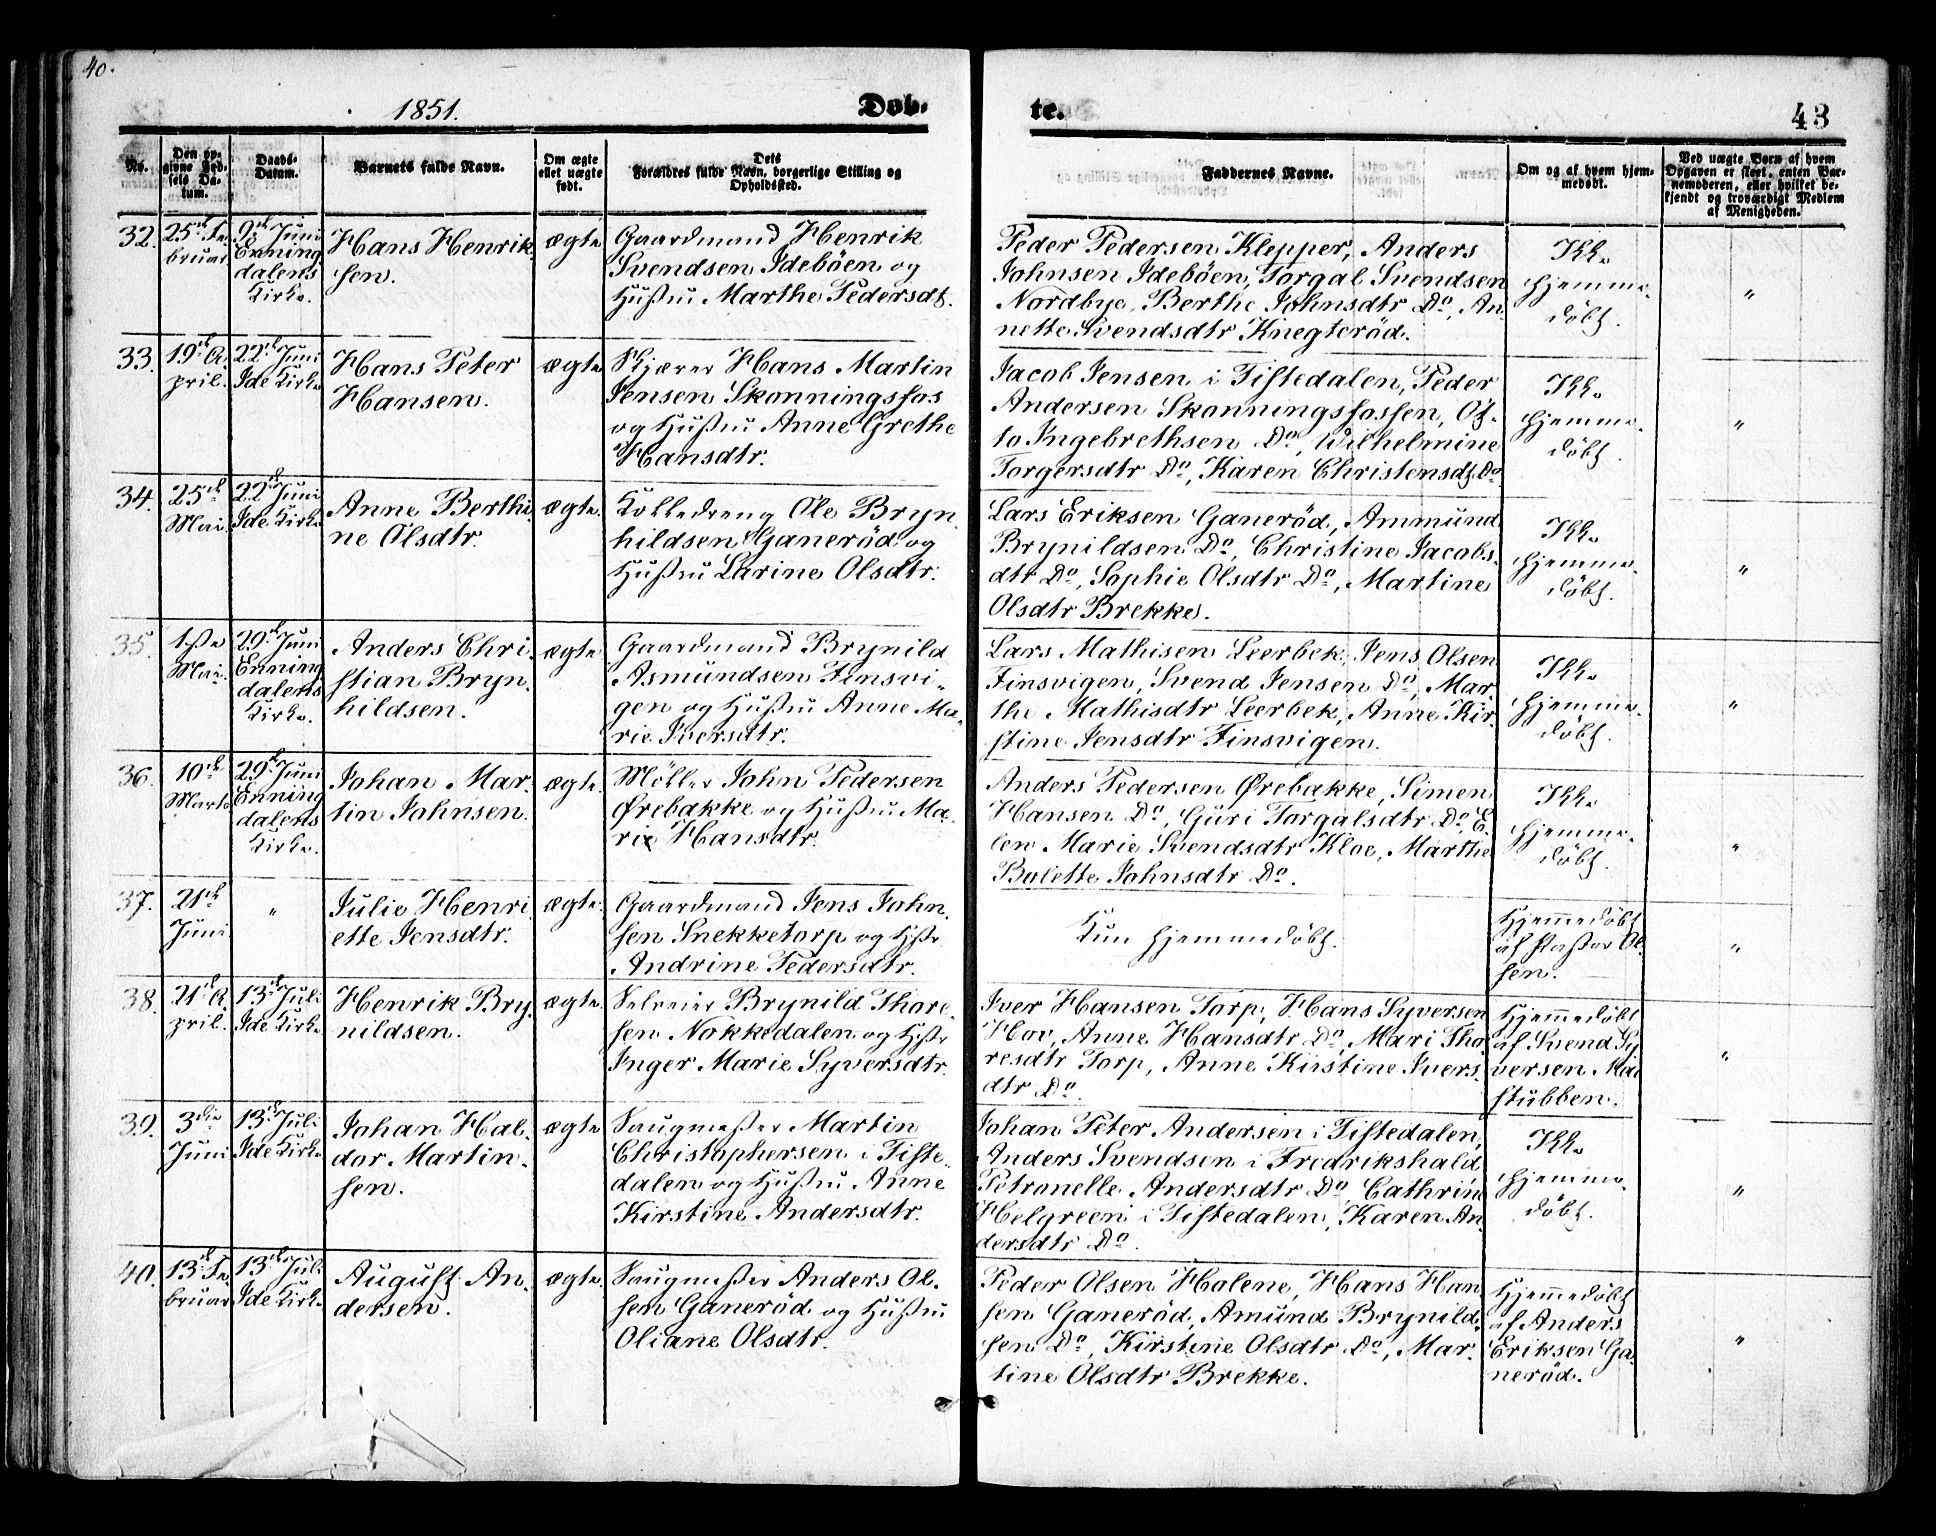 40.
1851.
Døb-
te.
43
No.
Den op-
givne Fød-
sels Da-
tum.
Daabs-
Datum.
Barnets fulde Navn.
Om ægte
eller uægte
født.
Dets
Forældres fulde Navn, borgerlige Stilling og
Opholdssted.
Faddernes Navne.
Om og af hvem hjem-
medøbt.
Ved uægte Børn af hvem
Opgaven er skeet, enten Bar-
nemoderen, eller hvilket be-
kjendt og troværdigt Medlem
af Menigheden.
32.
25de Fe-
bruar
9de Juni
Enning
dalens
Kirke.
Hans Henrik
sen.
ægte
Gaardmand Henrik
Svendsen Idebøen og
Hustru Marthe Pedersdt.
Peder Pedersen Klepper, Anders
Johnsen Idebøen, Torgal Svendsen
Nordbye, Berthe Johnsdtr Do, An
nette Svendsdtr Knegterød.
Ikke
hjemme-
døbt.
"
33.
19de A-
pril.
22de Juni
Ide Kirke
Hans Peter
Hansen.
ægte
Skjærer Hans Martin
Jensen Skonningsfos
og Hustru Anne Grethe
Hansdtr.
Jacob Jensen i Tistedalen, Peder
Andersen Skonningsfossen, Ot-
to Ingebrethsen Do, Wilhelmine
Torgersdtr Do, Karen Christensdt. Do
Ikke
hjemme-
døbt.
"
34.
25de
Mai.
22de Juni
Ide Kirke
Anne Berthi
ne Olsdtr.
ægte.
Koldedreng Ole Bryn
hildsen Ganerød og
Hustru Larine Olsdtr.
Lars Eriksen Ganerød, Ammund
Brynildsen Do, Christine Jacobs-
dtr Do, Sophie Olsdtr Do, Martine
Olsdtr Brekke.
Ikke
hjemme-
døbt.
"
35.
1ste
Mai.
29de Juni
Enning
dalens
Kirke.
Anders Chri-
stian Bryn-
hildsen.
ægte
Gaardmand Brynild
Asmundsen Finsvi-
gen og Hustru Anne Ma-
rie Iversdtr.
Lars Mathisen Leerbek, Jens Olsen
Finsvigen, Svend Jensen Do, Mar-
the Mathisdtr Leerbek, Anne Kir-
stine Jensdtr Finsvigen.
Ikke
hjemme-
døbt.
"
36.
10de
Marts
29de Juni
Enning
dalens
Kirke.
Johan Mar-
tin Johnsen.
ægte.
Møller John Pedersen
Ørebakke og Hustru Ma-
rie Hansdtr.
Anders Pedersen Ørebakke, Simen
Hansen Do, Guri Torgalsdtr Do, E-
len Marie Svendsdtr Kloe, Marthe
Bolette Johnsdtr Do.
Ikke
hjemme-
døbt.
"
37.
21de
Juni
"
Julie Henri
ette Jensdtr.
ægte.
Gaardmand Jens John-
sen Snekketorp og Hstr
Andrine Pedersdtr.
Kun hjemmedøbt.
Hjemmedøbt
af Pastor Ol-
sen.
"
38.
21de A-
pril.
13de Juli
Ide Kirke
Henrik Bry
nildsen.
ægte.
Selveier Brynild Thore-
sen Nokkedalen og Hstr
Inger Marie Syversdtr.
Iver Hansen Torp, Hans Syversen
Hov, Anne Hansdtr Do, Mari Tho-
resdtr Torp, Anne Kirstine Ivers-
dtr Do.
Hjemmedøbt
af Svend Sy
versen
stubben.
"
39.
3die
Juni
13de Juli
Ide Kirke
Johan Hal-
dor Martin-
sen.
ægte
Saugmester Martin
Christophersen i Tiste-
dalen og Hustru Anne
Kirstine Andersdtr.
Johan Peter Andersen i Tistedalen,
Anders Svendsen i Fredrikshald,
Petronelle Andersdtr Do, Cathrine
Helgreen i Tistedalen, Karen An-
dersdtr Do.
Ikke
hjemme-
døbt.
"
40.
13de Fe-
bruar
13de Juli
Ide Kirke
August An-
dersen.
ægte.
Saugmester Anders Ol-
sen Ganerød og Hustru
Oliane Olsdtr.
Peder Olsen Holene, Hans Han
sen Ganerød, Amund Brynild-
sen Do, Kirstine Olsdtr Do, Mar-
tine Olsdtr Brekke.
Hjemmedøbt
af Anders
Eriksen Ga-
nerød.
"